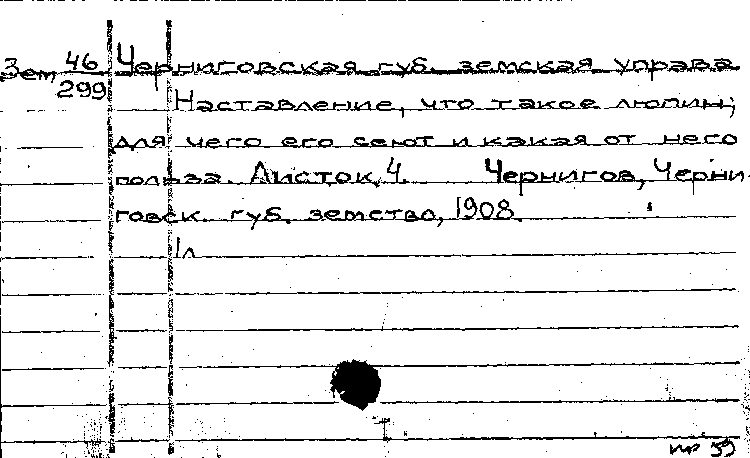 Зем 46 Черниговская губ. земская управа
299 Наставление, что такое люпин;
для чего его сеют и какая от него
польза. Листок, 4. Чернигов, Черни-
говск. губ. земство, 1908.
1л